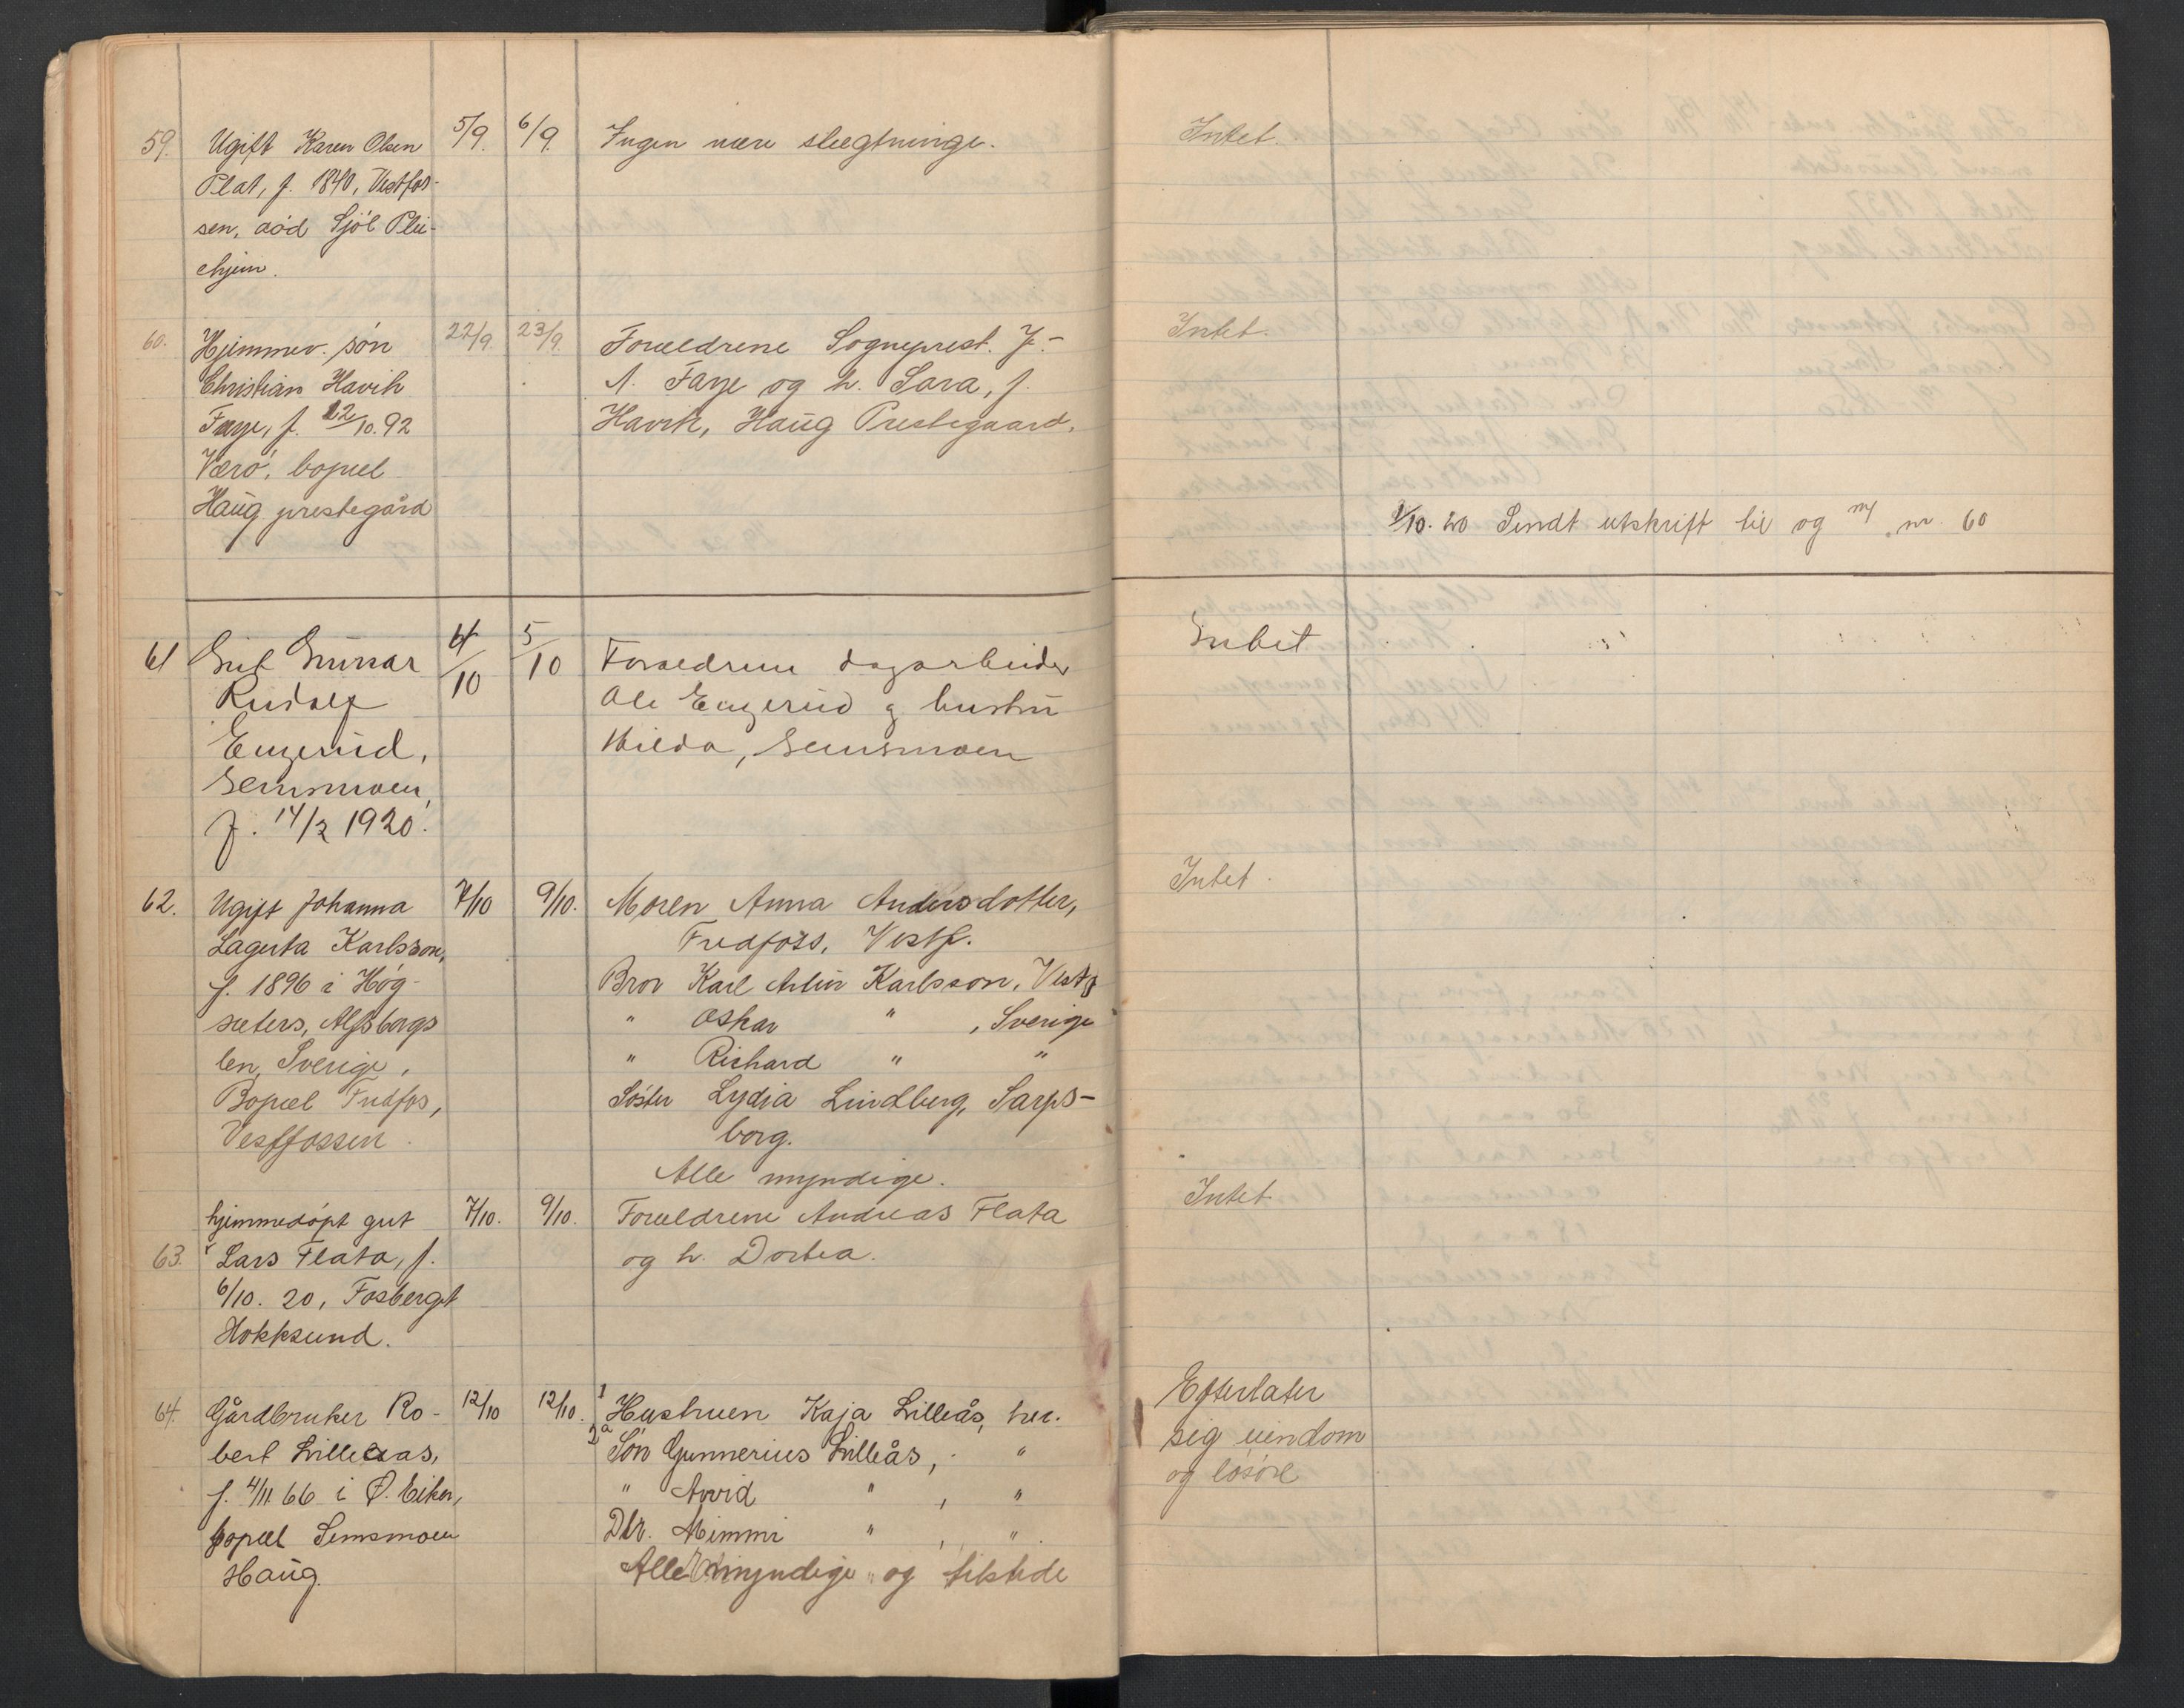 59. Ugift Karen Olsen 5/9. 6/9. Ingen nære slegtninge. Intet.
Plat, f. 1840, Vestfos-
sen, död Sjöl Plei-
ehjem.
60. Hjemmev. sön 22/9. 23/9. Foreldrene Sogneprest. J. Intet.
Christian Havik A. Faye og h. Sara, f.
Faye, f. 22/10. 92 Havik, Haug Prestegaard.
Værö, bopæl
Haug prestegård
1/10. 20 Sendt utskrift til og m/ nr. 60
61 Gut Gunnar 4/10 5/10 Foreldrene dagarbeider Intet
Rudolf Ole Engerud og hustru
Engerud, Hilda, Semsmoen
Semsmoen,
f. 14/2 1920.
62. Ugift Johanna 7/10 9/10. Moren Anna Andersdotter, Intet.
Lagerta Karlsson, Fredfoss, Vestf.
f. 1896 i Hög- Bror Karl Artur Karlsson, Vestf
sæters, Alfsborgs " Oskar " , Sverige
len, Sverige, " Richard " "
Bopæl Fredfos, Söster Lydia Lindberg, Sarps-
Vestfossen. borg.
Alle myndige.
hjemmedöpt gut 7/10. 9/10. Foreldrene Andreas Flata Intet
63. Lars Flata, f. og h. Dortea.
6/10. 20, Fosberget
Hokksund.
64. Gårdbruker Ro- 12/10 12/10. 1 Hustruen Kaja Lilleås, her. Efterlater
bert Lilleaas, 2a Sön Gunnerius Lilleås, " sig eiendom
f. 4/11 66 i Ö. Eiker, " Arvid " , " og lösöre
bopæl Semsmoen Dtr. Mimmi " , "
Haug. Alle myndige og tilstede